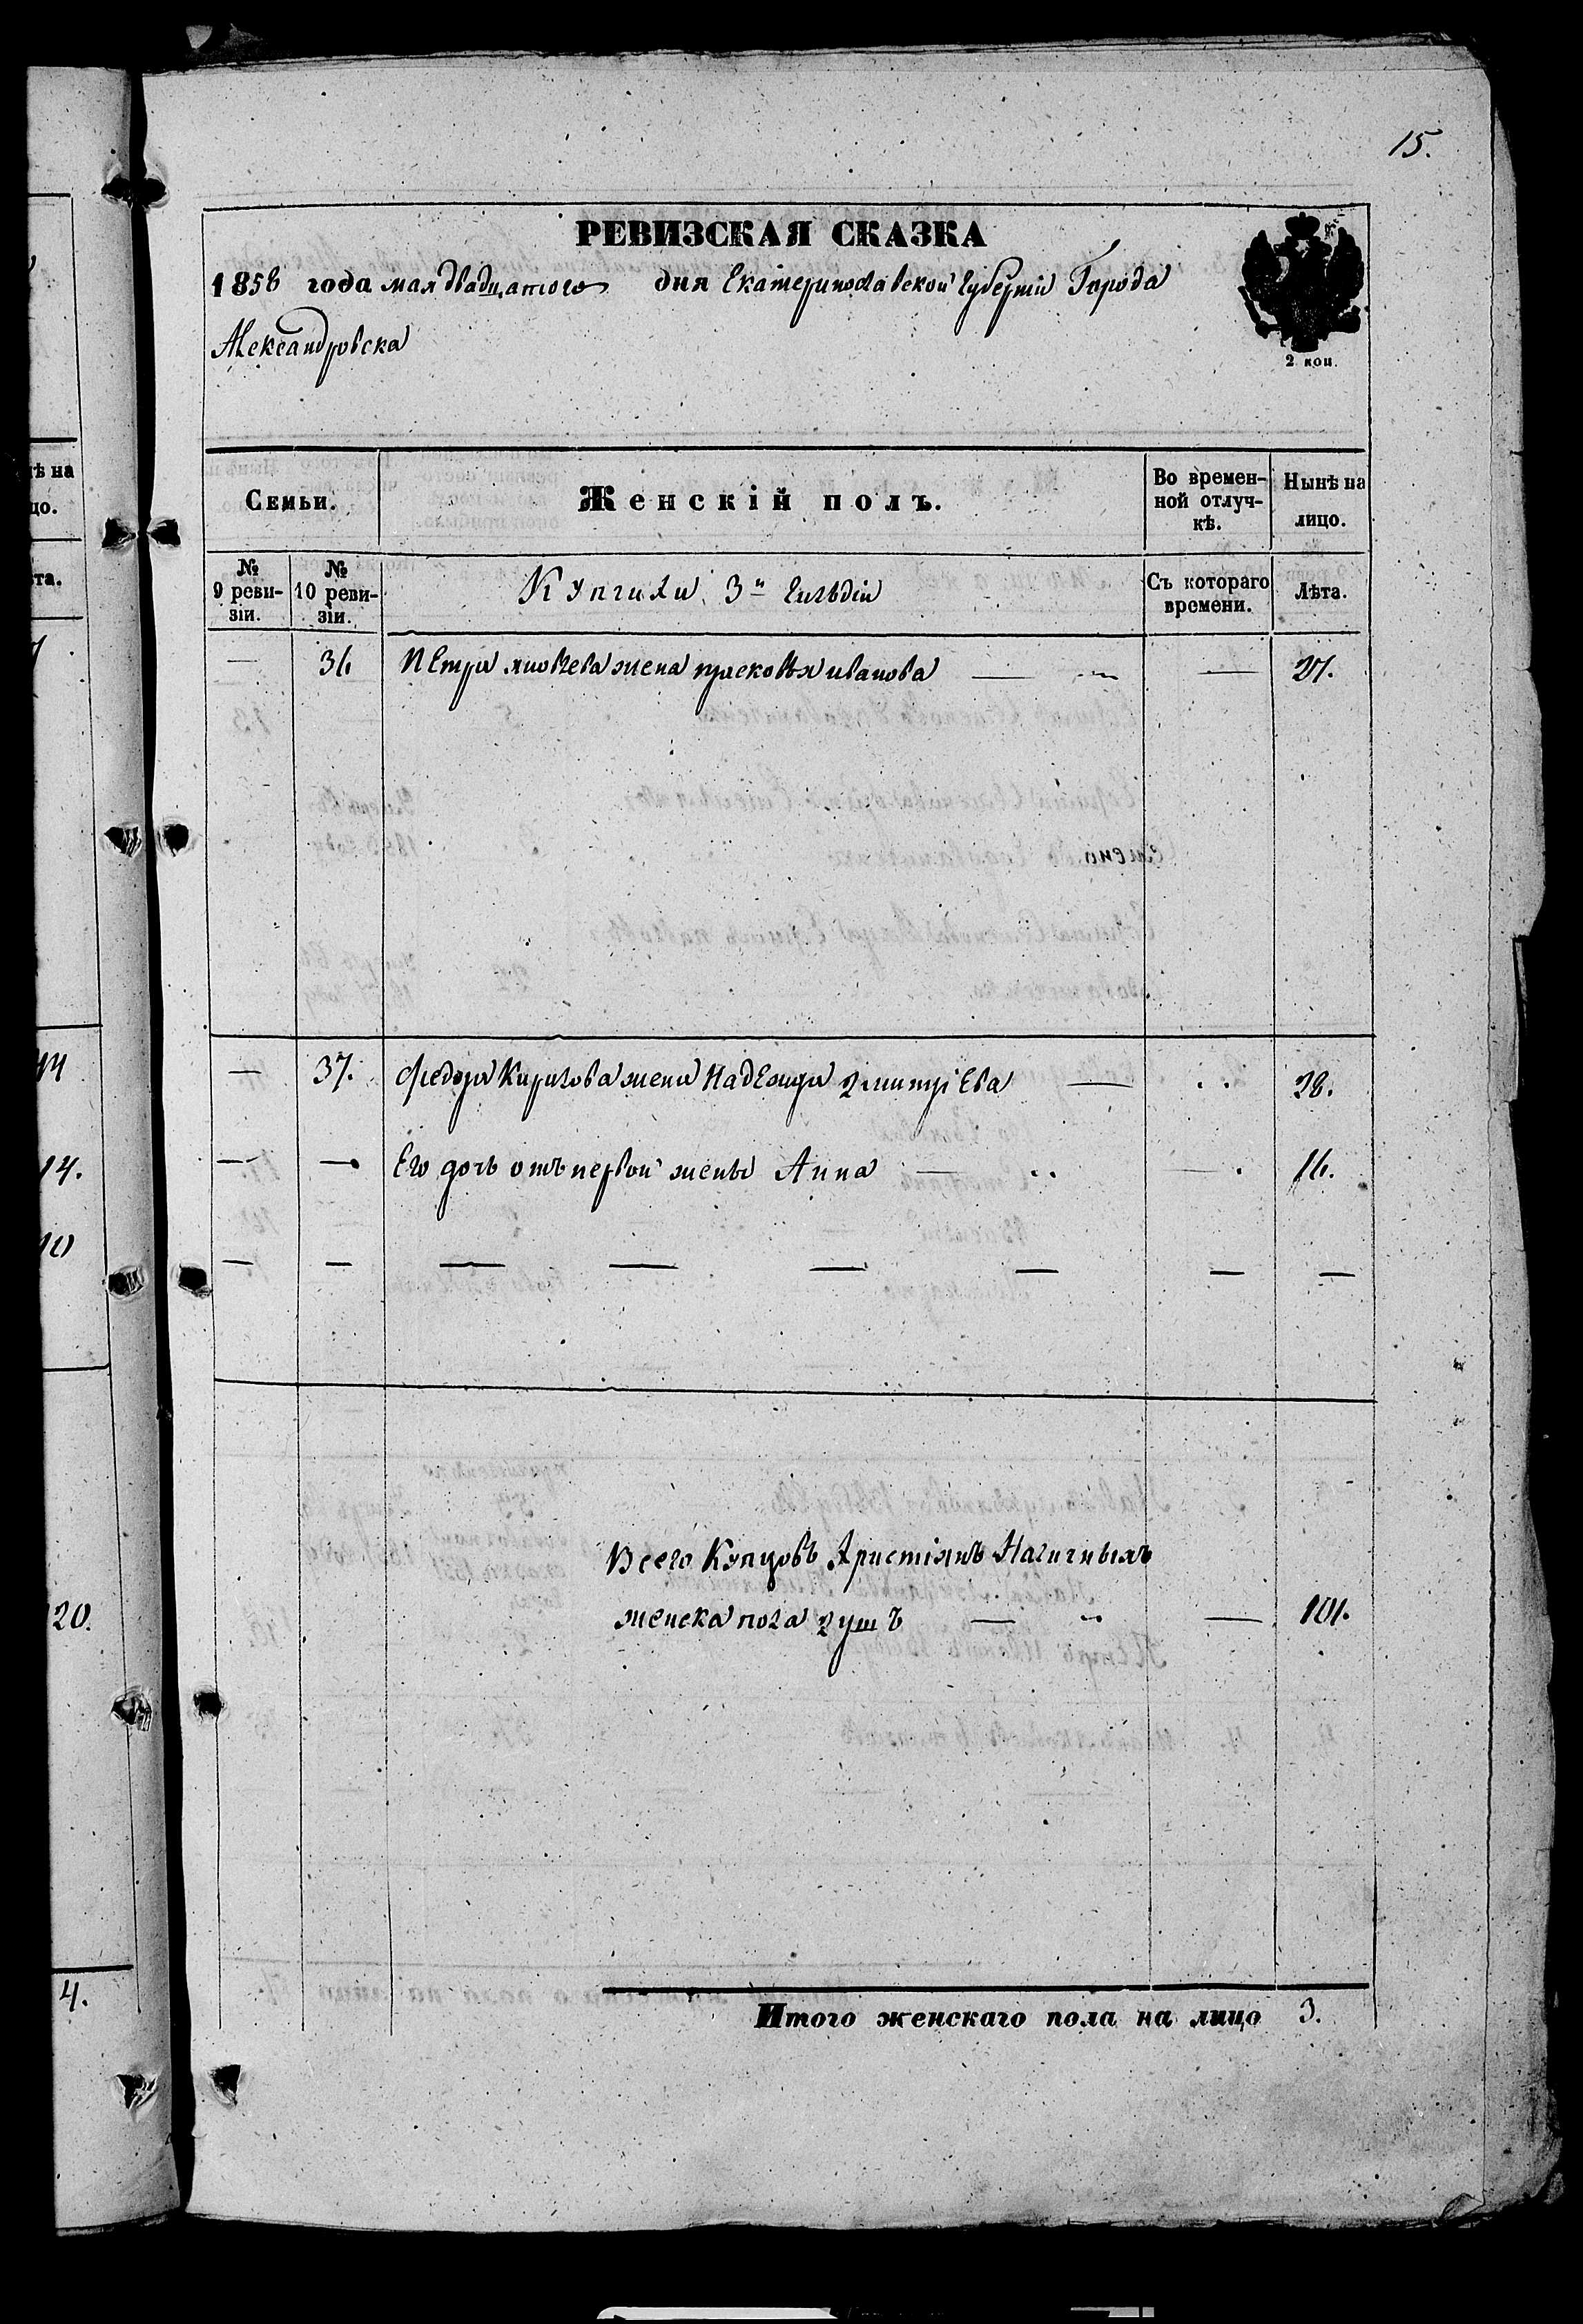 15.
РЕВИЗСКАЯ СКАЗКА
1858 года мая двадцатого дня Екатеринославской Губерніи Города
Александровска
2 коп.
Семьи.
Женскій полъ.
Во времен-
ной отлуч-
кѣ.
Нынѣ на
лицо.
№
9 реви-
зіи.
№
10 реви-
зіи.
Купчихи 3й гильдіи
Съ котораго
времени.
Лѣта.
— 36 Петра яковлева жена прасковья иванова — — 27.
— 37. Федора Кирилова жена Надежда дмитріева — 28.
— — Его дочь отъ первой жены Анна — — 16.
— — — — — — — —
Всего Купцовъ Христіянъ Наличныхъ
женска пола душъ — — 101.
Итого женскаго пола на лицо 3.
ѣ на
цо.
та.
14.
10
20.
4.